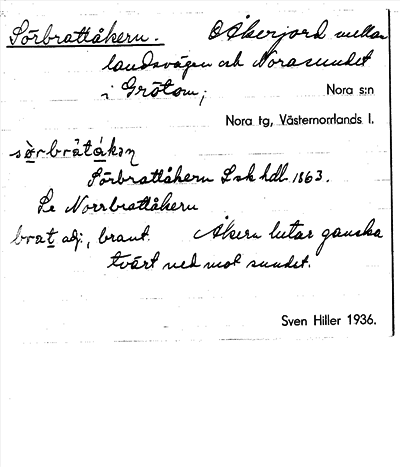 Sörbrattåkern. Åkerjord mellan
landsvägen och Norasundet
i Grötom; Nora s:n
Nora tg, Västernorrlands l.
Sörbrattåkern Lsk hdl. 1863.
Se Norrbrattåkern
brat adj., brant. Åkern lutar ganska
tvärt ned mot sundet.
Sven Hiller 1936.